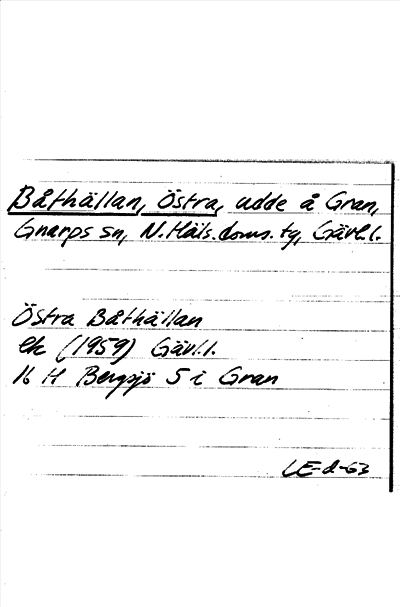 Båthällan, Östra, udde å Gran,
Gnarps sn, N. Häls. doms. tg, Gävl. l.
Östra Båthällan
ek (1959) Gävl. l.
16 H Bergsjö S i Gran
LE-d-63